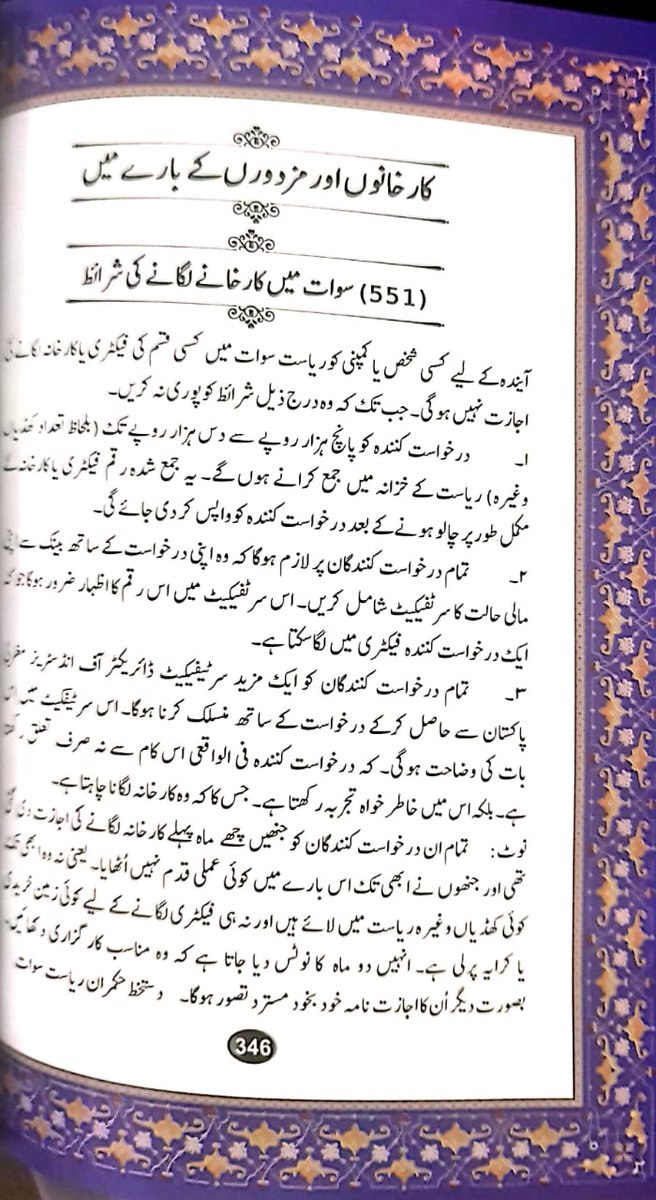 کارخانوں اور مزدورں کے بارے میں
(551) سوات میں کارخانے لگانے کی شرائط
آیندہ کے لیے کسی شخص یا کمپنی کو ریاست سوات میں کسی قسم کی فیکٹری یا کارخانہ لگانے کی
اجازت نہیں ہوگی۔ جب تک کہ وہ درج ذیل شرائط کو پوری نہ کریں۔
۱۔ درخواست کنندہ کو پانچ ہزار روپے سے دس ہزار روپے تک (بلحاظ تعداد کھڈیاں
وغیرہ) ریاست کے خزانہ میں جمع کرانے ہوں گے۔ یہ جمع شدہ رقم فیکٹری یا کارخانہ کے
مکمل طور پر چالو ہونے کے بعد درخواست کنندہ کو واپس کر دی جائے گی۔
۲۔ تمام درخواست کنندگان پر لازم ہوگا کہ وہ اپنی درخواست کے ساتھ بینک سے اپنی
مالی حالت کا سرٹفیکیٹ شامل کریں۔ اس سرٹفیکیٹ میں اس رقم کا اظہار ضرور ہوگا جو کہ
ایک درخواست کنندہ فیکٹری میں لگا سکتا ہے۔
۳۔ تمام درخواست کنندگان کو ایک مزید سرٹیفیکیٹ ڈائریکٹر آف انڈسٹریز مغربی
پاکستان سے حاصل کرکے درخواست کے ساتھ منسلک کرنا ہوگا۔ اس سرٹیفکیٹ میں اس
بات کی وضاحت ہوگی۔ کہ درخواست کنندہ فی الواقعی اس کام سے نہ صرف تعلق رکھتا
ہے۔ بلکہ اس میں خاطر خواہ تجربہ رکھتا ہے۔ جس کا کہ وہ کارخانہ لگانا چاہتا ہے۔
نوٹ: تمام ان درخواست کنندگان کو جنھیں چھے ماہ پہلے کارخانہ لگانے کی اجازت دی گئی
تھی اور جنھوں نے ابھی تک اس بارے میں کوئی عملی قدم نہیں اُٹھایا۔ یعنی نہ وہ ابھی تک
کوئی کھڈیاں وغیرہ ریاست میں لائے ہیں اور نہ ہی فیکٹری لگانے کے لیے کوئی زمین خریدی
یا کرایہ پر لی ہے۔ انہیں دو ماہ کا نوٹس دیا جاتا ہے کہ وہ مناسب کارگزاری دکھائیں۔
بصورت دیگر اُن کا اجازت نامہ خود بخود مسترد تصور ہوگا۔ دستخط حکمران ریاست سوات
346